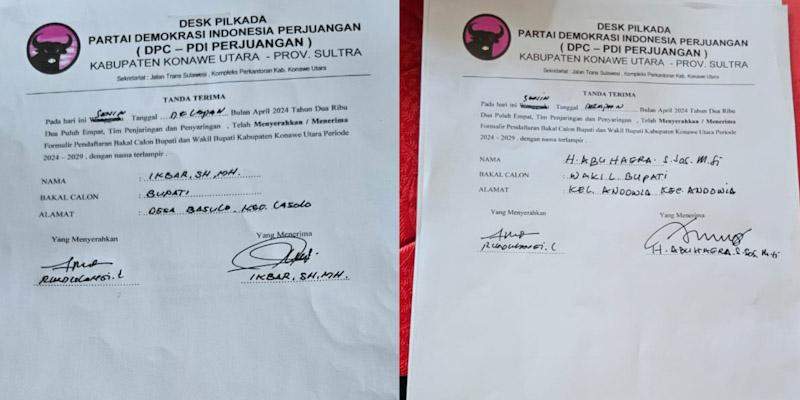 DESK PILKADA
PARTAI DEMOKRASI INDONESIA PERJUANGAN
( DPC – PDI PERJUANGAN )
KABUPATEN KONAWE UTARA - PROV. SULTRA
Sekretariat : Jalan Trans Sulawesi , Kompleks Perkantoran Kab. Konawe Utara
TANDA TERIMA
Pada hari ini SENIN Tanggal DELAPAN Bulan April 2024 Tahun Dua Ribu
Dua Puluh Empat, Tim Penjaringan dan Penyaringan , Telah Menyerahkan / Menerima
Formulir Pendaftaran Bakal Calon Bupati dan Wakil Bupati Kabupaten Konawe Utara Periode
2024 – 2029 , dengan nama terlampir .
NAMA : IKBAR, SH, MH.
BAKAL CALON : BUPATI
ALAMAT : DESA BASULE, KEC. LASOLO
Yang Menyerahkan Yang Menerima
IKBAR, SH, MH.
DESK PILKADA
PARTAI DEMOKRASI INDONESIA PERJUANGAN
( DPC – PDI PERJUANGAN )
KABUPATEN KONAWE UTARA - PROV. SULTRA
Sekretariat : Jalan Trans Sulawesi , Kompleks Perkantoran Kab. Konawe Utara
TANDA TERIMA
Pada hari ini SENIN Tanggal DELAPAN Bulan April 2024 Tahun Dua Ribu
Dua Puluh Empat, Tim Penjaringan dan Penyaringan , Telah Menyerahkan / Menerima
Formulir Pendaftaran Bakal Calon Bupati dan Wakil Bupati Kabupaten Konawe Utara Periode
2024 – 2029 , dengan nama terlampir .
NAMA : H. ABUHAERA. S.Sos. M.Si
BAKAL CALON : WAKIL BUPATI
ALAMAT : KEL. ANDOWIA KEC. ANDOWIA
Yang Menyerahkan Yang Menerima
H. ABUHAERA. S.Sos. M.Si